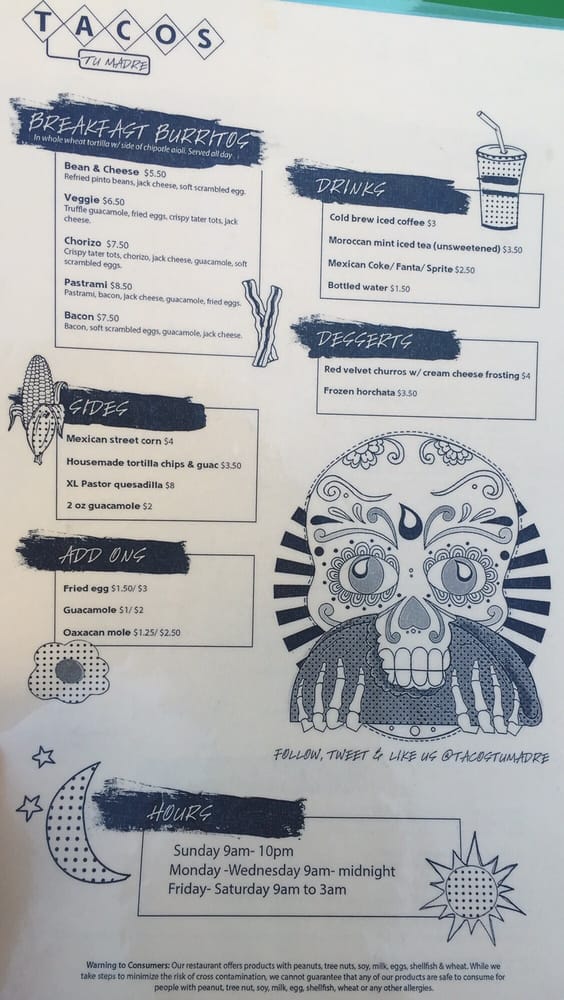 TACOS
TU MADRE
BREAKFAST BURRITOS
In whole wheat tortilla w/ side of chipotle aioli. Served all day
Bean & Cheese $5.50
Refried pinto beans, jack cheese, soft scrambled egg.
Veggie $6.50
Truffle guacamole, fried eggs, crispy tater tots, jack
cheese.
Chorizo $7.50
Crispy tater tots, chorizo, jack cheese, guacamole, soft
scrambled eggs.
Pastrami $8.50
Pastrami, bacon, jack cheese, guacamole, fried eggs.
Bacon $7.50
Bacon, soft scrambled eggs, guacamole, jack cheese.
SIDES
Mexican street corn $4
Housemade tortilla chips & guac $3.50
XL Pastor quesadilla $8
2 oz guacamole $2
ADD ONS
Fried egg $1.50/ $3
Guacamole $1/ $2
Oaxacan mole $1.25/ $2.50
DRINKS
Cold brew iced coffee $3
Moroccan mint iced tea (unsweetened) $3.50
Mexican Coke/ Fanta/ Sprite $2.50
Bottled water $1.50
DESSERTS
Red velvet churros w/ cream cheese frosting $4
Frozen horchata $3.50
FOLLOW, TWEET & LIKE US @TACOSTUMADRE
HOURS
Sunday 9am- 10pm
Monday -Wednesday 9am- midnight
Friday- Saturday 9am to 3am
Warning to Consumers: Our restaurant offers products with peanuts, tree nuts, soy, milk, eggs, shellfish & wheat. While we
take steps to minimize the risk of cross contamination, we cannot guarantee that any of our products are safe to consume for
people with peanut, tree nut, soy, milk, egg, shellfish, wheat or any other allergies.